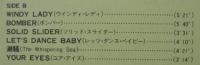 SIDE B
WINDY LADY (ウインディ・レディ) (5′21″)
BOMBER (ボンバー) (5′40″)
SOLID SLIDER (ソリッド・スライダー) (5′31″)
LET'S DANCE BABY (レッツ・ダンス・ベイビー) (4′10″)
潮騒 (The Whispering Sea) (4′21″)
YOUR EYES (ユア・アイズ) (3′04″)